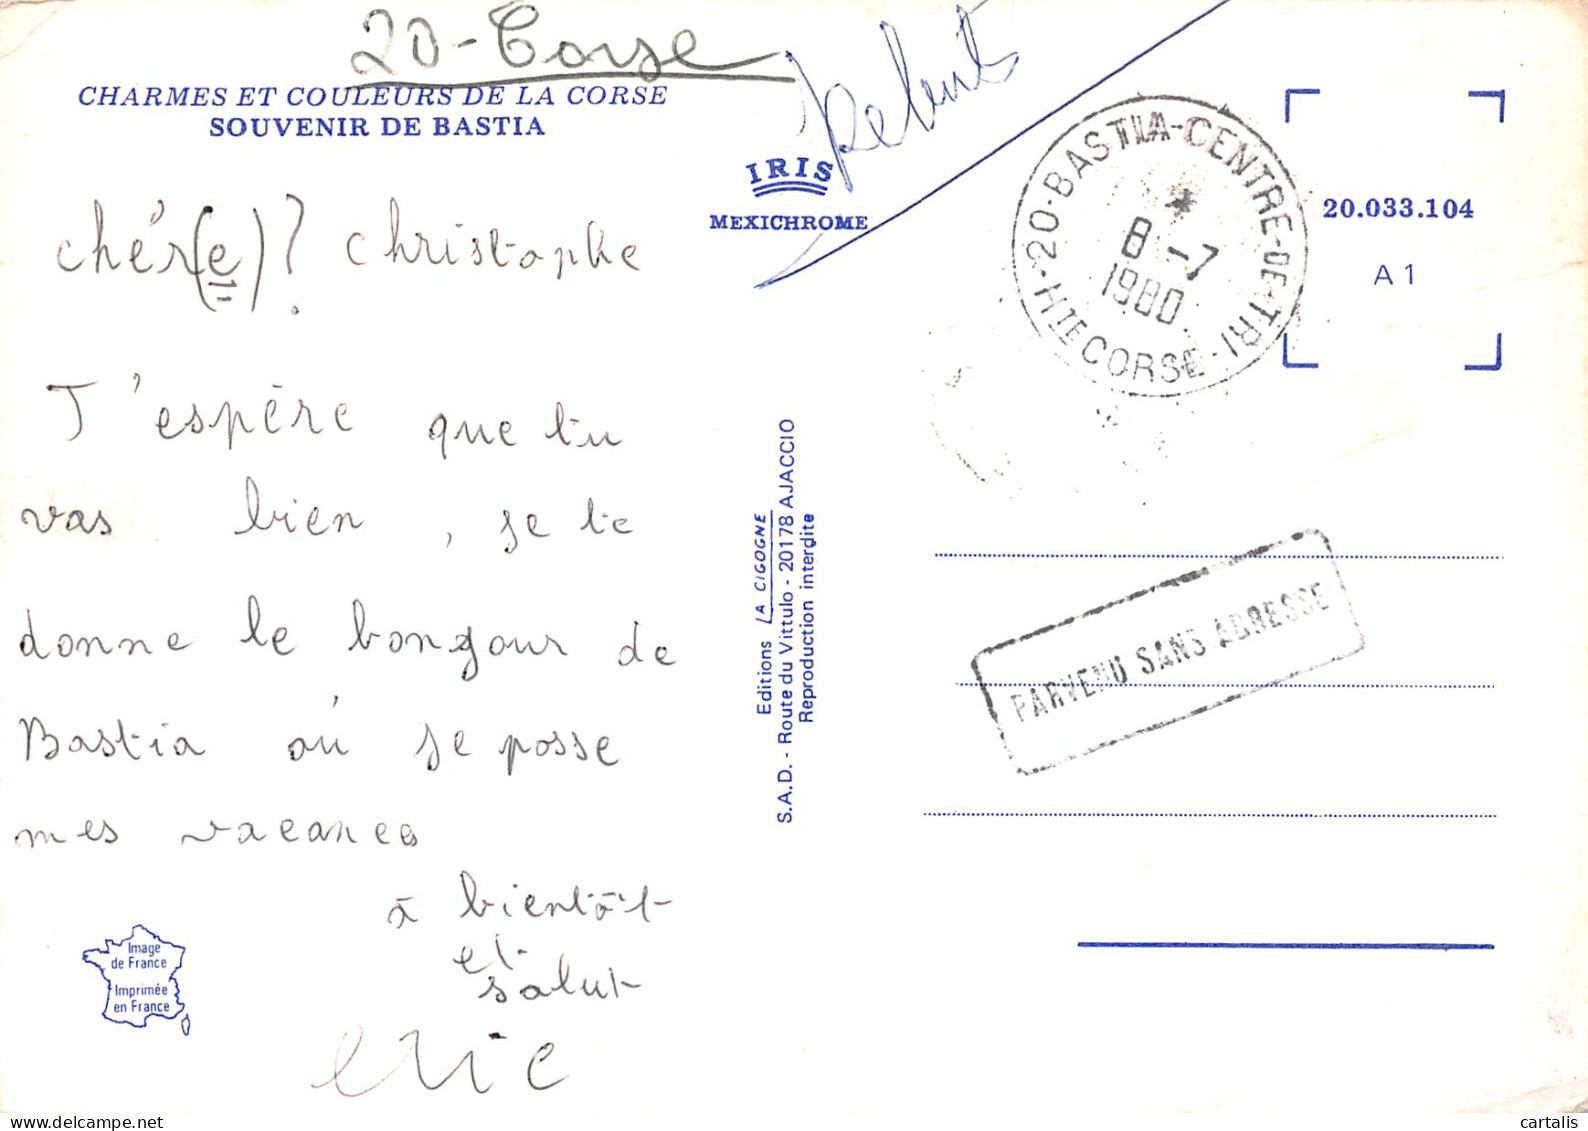 20-Corse
Rebut
CHARMES ET COULEURS DE LA CORSE
SOUVENIR DE BASTIA
IRIS
MEXICHROME
chér(e)? christophe
J'espère que tu
vas bien, je te
donne le bonjour de
Bastia où je passe
mes vacances
à bientôt
et
salut
eric
Image
de France
Imprimée
en France
Editions LA CIGOGNE
S.A.D. - Route du Vittulo - 20178 AJACCIO
Reproduction interdite
20-BASTIA-CENTRE-DE-TRI
*
8-7
1980
HTE CORSE
20.033.104
A 1
PARVENU SANS ADRESSE
cartalis